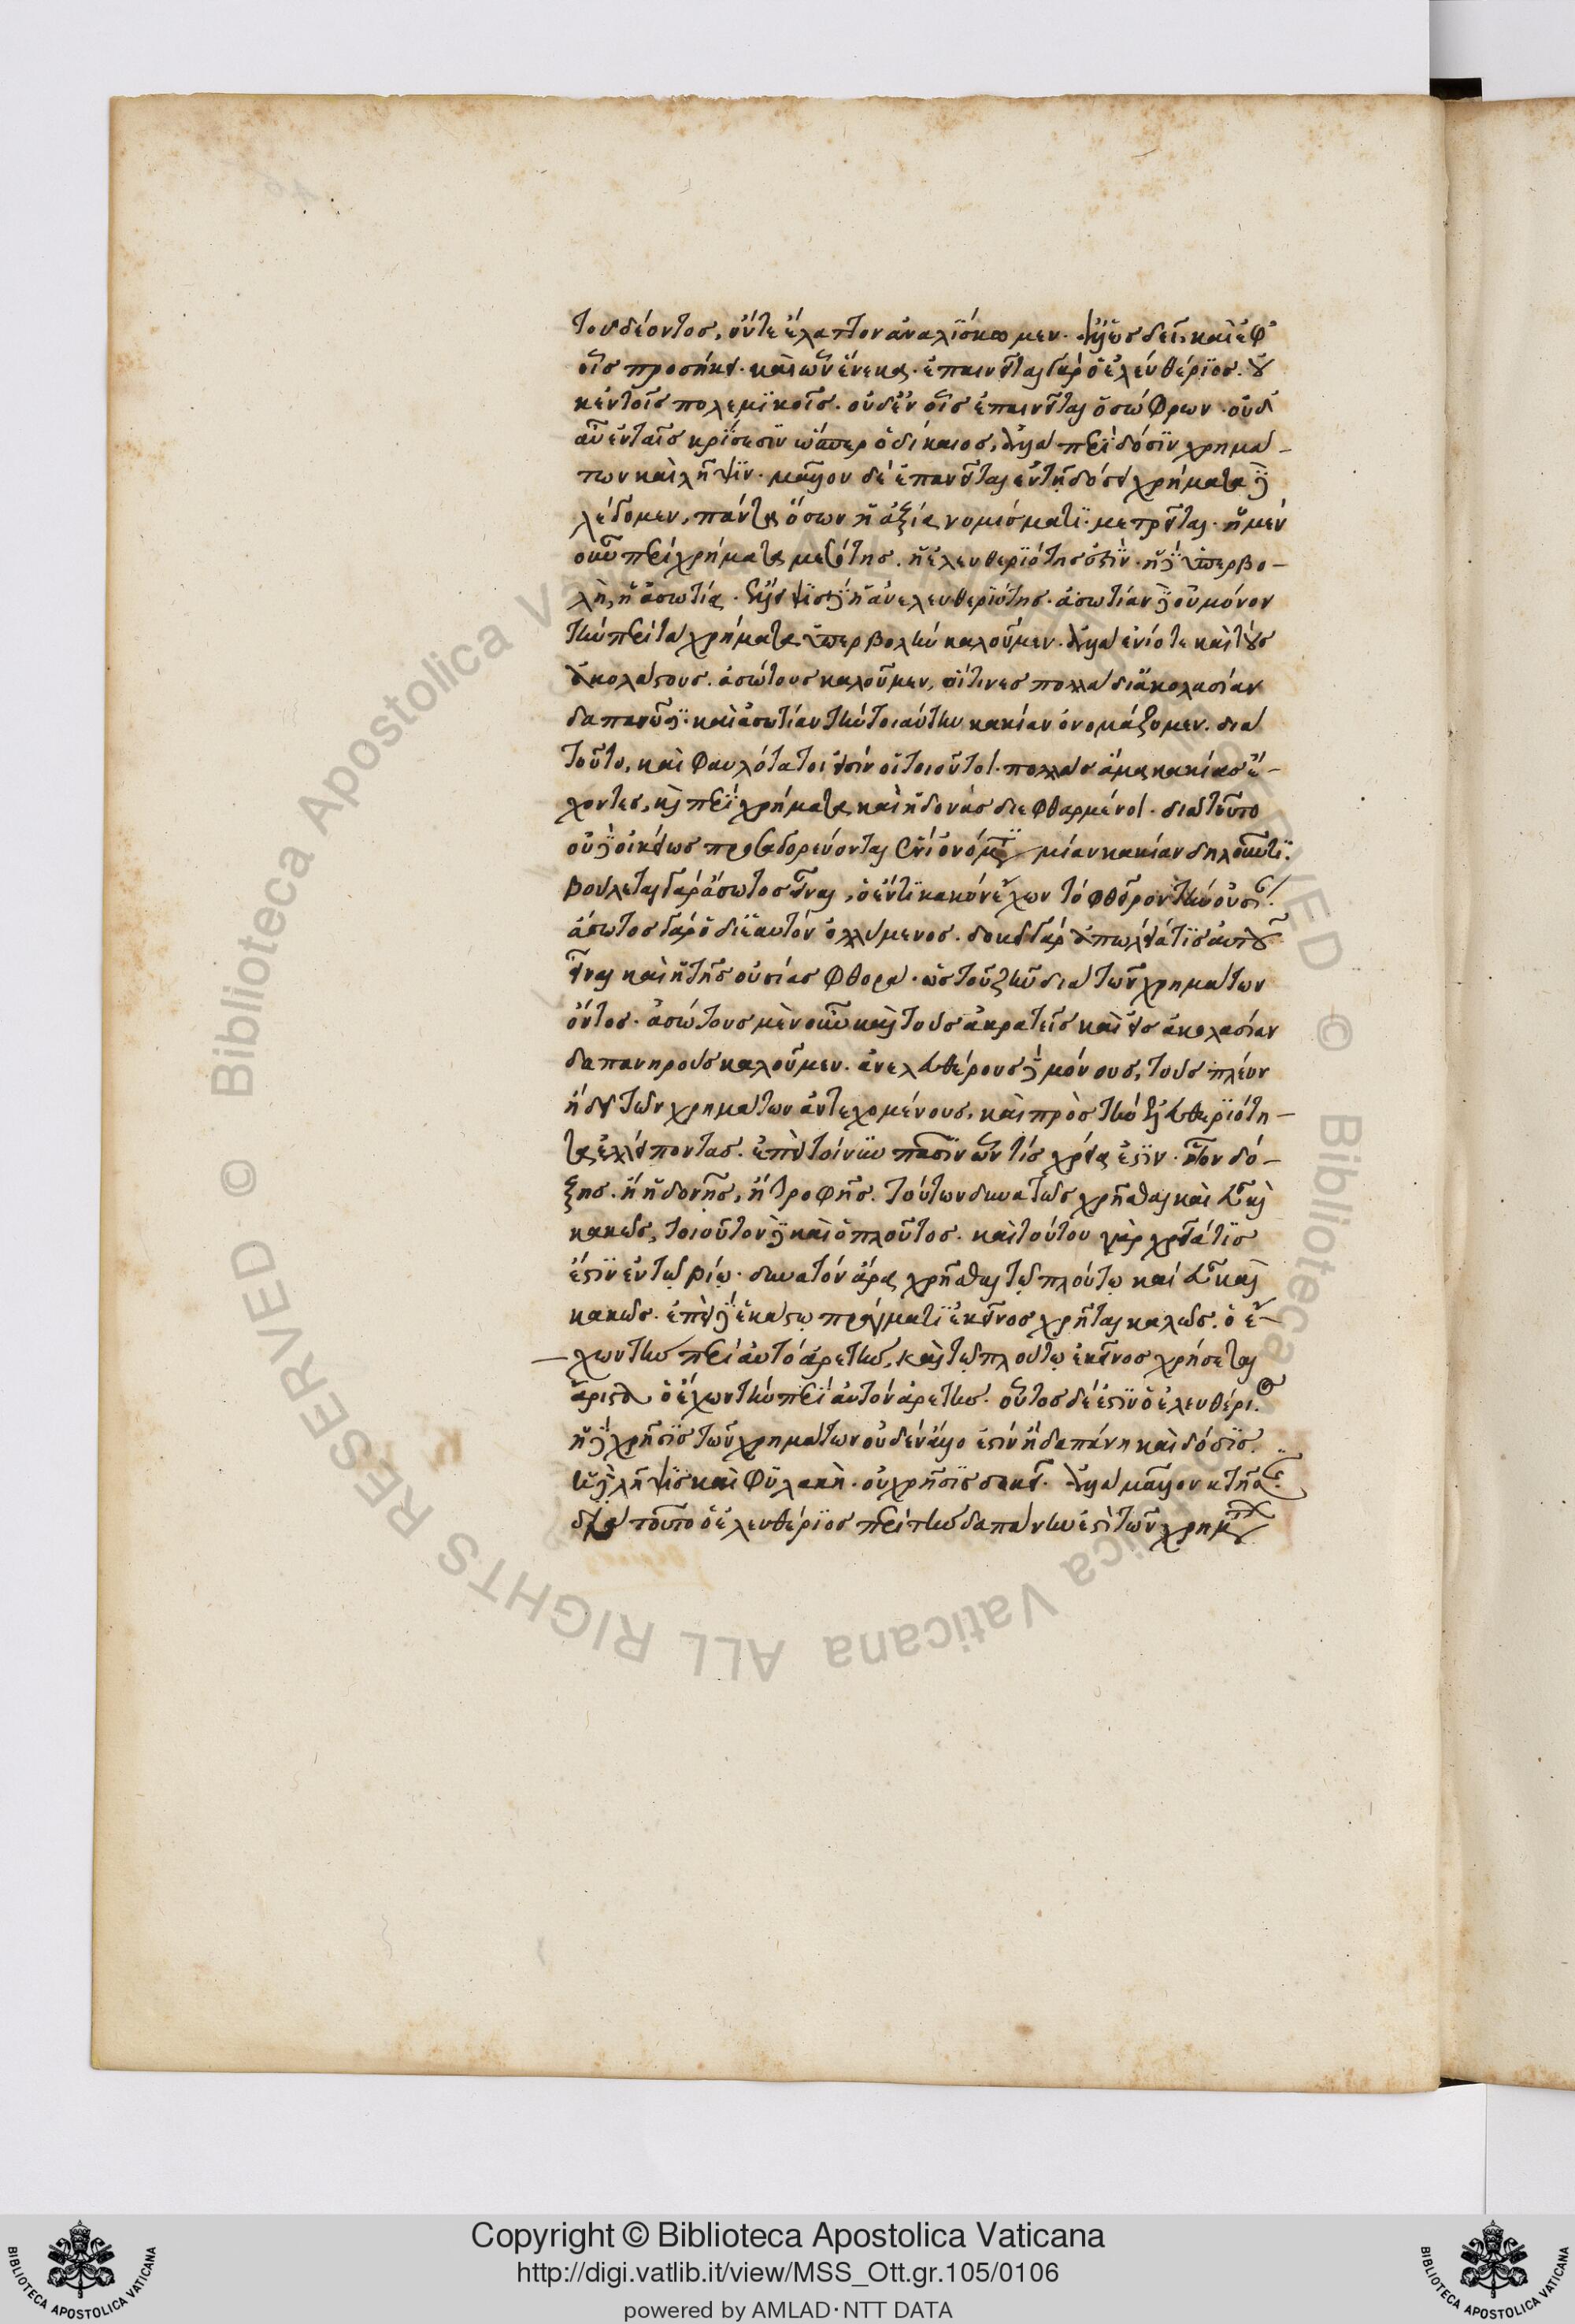 τοῦ δέοντος, οὔτε ἔλαττον ἀναλίσκομεν. ἀλλ' ὡς δεῖ, καὶ ἐφ'
οἷς προσήκει. καὶ ὧν ἕνεκα. ἐπαινεῖται γὰρ ὁ ἐλευθέριος. οὐ
κ ἐν τοῖς πολεμικοῖς. οὐδ' ἐν οἷς ἐπαινεῖται ὁ σώφρων. οὐδ'
αὖ ἐν ταῖς κρίσεσιν ὥσπερ ὁ δίκαιος, ἀλλὰ περὶ δόσιν χρημά-
των καὶ λῆψιν. μᾶλλον δὲ ἐπαινεῖται ἐν τῇ δόσει χρήματα δὲ
λέγομεν, πάντα ὅσων ἡ ἀξία νομίσματι μετρεῖται. ἡ μὲν
οὖν περὶ χρήματα μεσότης. ἡ ἐλευθεριότης ἐστίν. ἡ δὲ ὑπερβο-
λὴ, ἡ ἀσωτία. ἔλλειψις δὲ ἡ ἀνελευθεριότης. ἀσωτίαν δὲ οὐ μόνον
τὴν περὶ τὰ χρήματα ὑπερβολὴν καλοῦμεν. ἀλλὰ ἐνίοτε καὶ τοὺς
ἀκολάστους. ἀσώτους καλοῦμεν, οἵτινες πολλὰ δι' ἀκολασίαν
δαπανῶσι. καὶ ἀσωτίαν τὴν τοιαύτην κακίαν ὀνομάζομεν. διὰ
τοῦτο, καὶ φαυλότατοι εἰσὶν οἱ τοιοῦτοι. πολλὰς ἅμα κακίας ἔ-
χοντες, καὶ περὶ χρήματα καὶ ἡδονὰς διεφθαρμένοι. διὰ τοῦτο
οὐδὲ οἰκείως προσαγορεύονται ἑνὶ ὀνόματι μίαν κακίαν δηλοῦντι.
βούλεται γὰρ ἄσωτος εἶναι, ὁ ἕν τι κακὸν ἔχων τὸ φθείρον τὴν οὐσίαν.
ἄσωτος γὰρ ὁ δι' ἑαυτὸν ὀλλύμενος. δοκεῖ γὰρ ἀπώλειά τις αὐτοῦ
εἶναι καὶ ἡ τῆς οὐσίας φθορά. ὡς τοῦ ζῆν διὰ τῶν χρημάτων
ὄντος. ἀσώτους μὲν οὖν καὶ τοὺς ἀκρατεῖς καὶ εἰς ἀκολασίαν
δαπανηροὺς καλοῦμεν. ἀνελευθέρους δὲ μόνους, τοὺς πλέον
ἢ δεῖ τῶν χρημάτων ἀντεχομένους, καὶ πρὸς τὴν ἐλευθεριότη-
τα ἐλλείποντας. ἐπεὶ τοίνυν πᾶσιν ὧν τὶς χρεία ἐστίν. οἷον δό-
ξης. ἢ ἡδονῆς, ἢ τροφῆς. τούτων δυνατῶς χρῆσθαι καὶ εὖ καὶ
κακῶς, τοιοῦτον δὲ καὶ ὁ πλοῦτος. καὶ τούτου γὰρ χρεία τίς
ἐστιν ἐν τῷ βίῳ. δυνατὸν ἄρα χρῆσθαι τῷ πλούτῳ καὶ εὖ καὶ
κακῶς. ἐπεὶ δὲ ἑκάστῳ πράγματι ἐκεῖνος χρῆται καλῶς. ὁ ἔ-
χων τὴν περὶ αὐτὸ ἀρετὴν, καὶ τῷ πλούτῳ ἐκεῖνος χρήσεται
ἄριστα ὁ ἔχων τὴν περὶ αὐτὸν ἀρετὴν. οὗτος δέ ἐστιν ὁ ἐλευθέριος.
ἡ δὲ χρῆσις τῶν χρημάτων οὐδὲν ἄλλο ἐστὶν ἢ δαπάνη καὶ δόσις.
ἡ δὲ λῆψις καὶ φυλακὴ. οὐ χρῆσις δοκεῖ. ἀλλὰ μᾶλλον κτῆσις.
διὰ τοῦτο ὁ ἐλευθέριος περὶ τὴν δαπάνην ἐστὶ τῶν χρημάτων
Copyright © Biblioteca Apostolica Vaticana
http://digi.vatlib.it/view/MSS_Ott.gr.105/0106
powered by AMLAD·NTT DATA
BIBLIOTECA APOSTOLICA VATICANA
BIBLIOTECA APOSTOLICA VATICANA
© Biblioteca Apostolica Vaticana ALL RIGHTS RESERVED